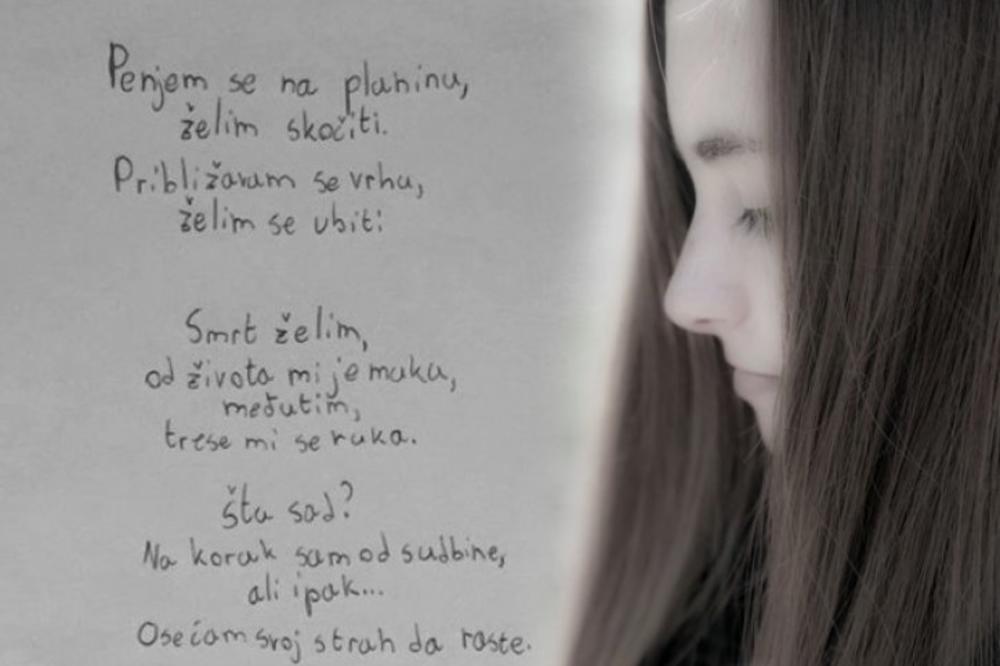 Penjem se na planinu,
želim skočiti.
Približavam se vrhu,
želim se ubiti
Smrt želim,
od života mi je muka,
međutim,
trese mi se ruka.
Šta sad?
Na korak sam od sudbine,
ali ipak...
Osećam svoj strah da raste.